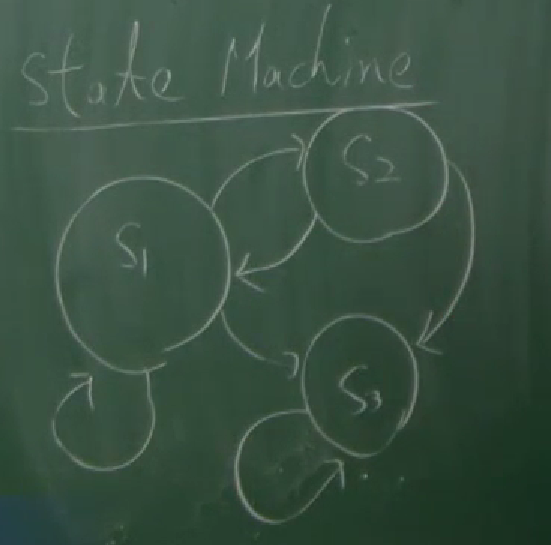 State Machine
S2
S1
S3